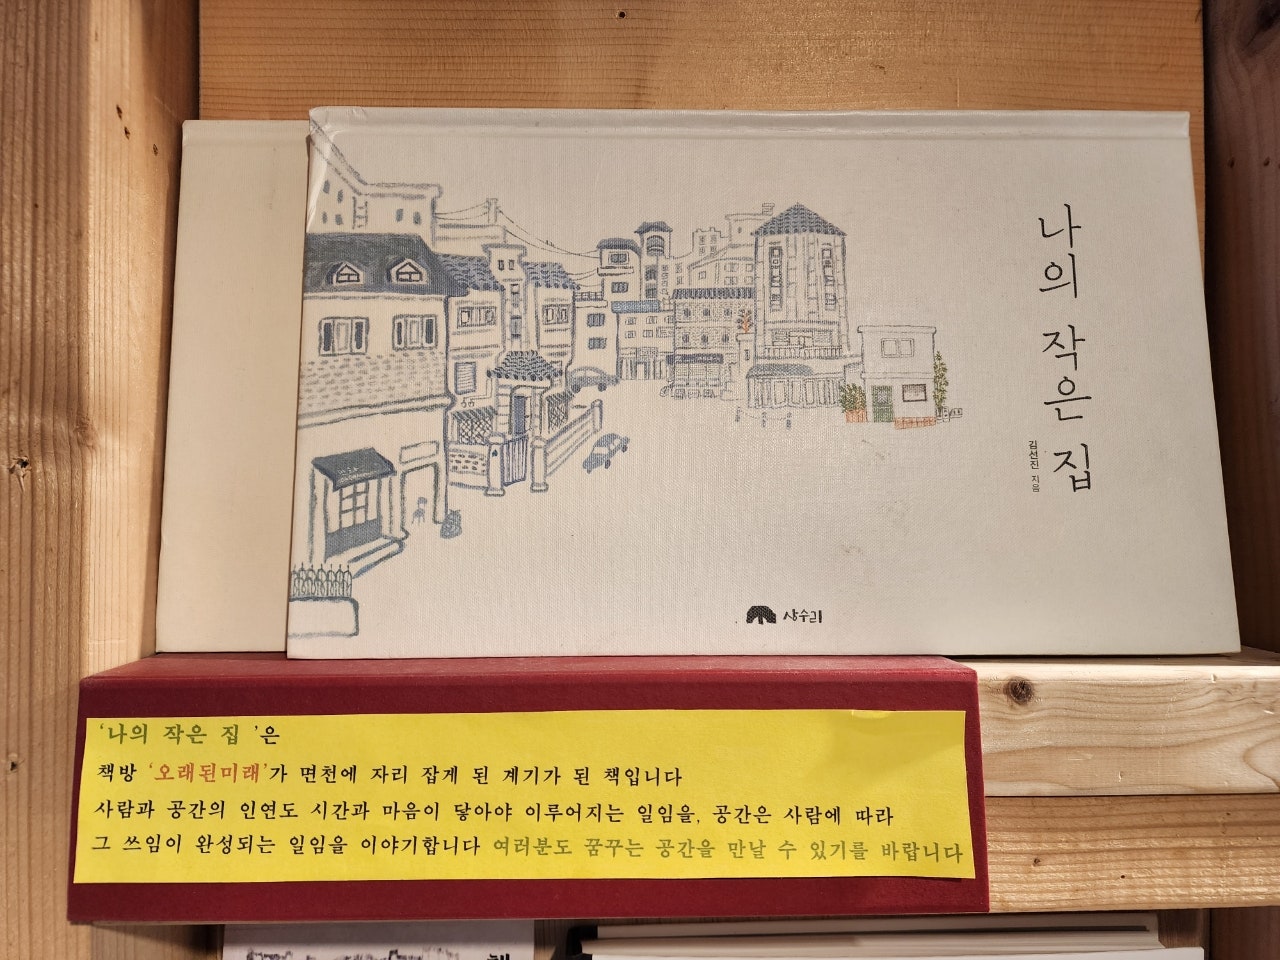 나의 작은 집
김선진 지음
상수리
'나의 작은 집 '은
책방 '오래된미래'가 면천에 자리 잡게 된 계기가 된 책입니다
사람과 공간의 인연도 시간과 마음이 닿아야 이루어지는 일임을, 공간은 사람에 따라
그 쓰임이 완성되는 일임을 이야기합니다 여러분도 꿈꾸는 공간을 만날 수 있기를 바랍니다